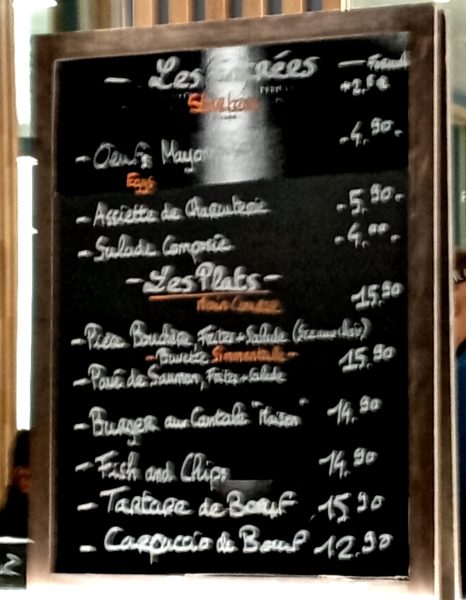 - Les Entrées
Starters
+2,5€
- Oeufs Mayonnaise -4,90-
Eggs
- Assiette de Charcuterie -5,90-
- Salade Composée -4,00-
- Les Plats -
Main Course 15,90
- Pièce Bouchère, Frites + Salade
- Bavette Simmental - 15,90
- Pavé de Saumon, Frites + Salade
- Burger au Cantal "Maison" 14,90
- Fish and Chips 14,90
- Tartare de Boeuf 15,90
- Carpaccio de Boeuf 12,90
2